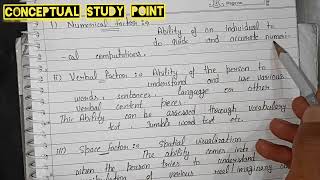 CONCEPTUAL STUDY POINT
i) Numerical factor :- Ability of an individual to
do quick and accurate numeri-
-cal computations.
ii) Verbal factor :- Ability of the person to
understand and use various
words, sentences, language or other
verbal content pieces
This Ability can be assessed through vocabulary
test, Jumble word test etc.
iii) Space factor :- Spatial visualization
The ability comes into
when the person tries to understand
of various